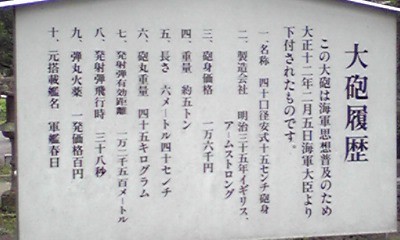 大砲履歴
この大砲は海軍思想普及のため
大正十二年二月五日海軍大臣より
下付されたものです。
一、名称 四十口径安式十五センチ砲身
二、製造会社 明治三十五年イギリス、
アームストロング
三、砲身価格 一万六千円
四、重量 約五トン
五、長さ 六メートル四十センチ
六、砲丸重量 四十五キログラム
七、発射弾有効距離 一万二千五百メートル
八、発射弾飛行時 三十八秒
九、弾丸火薬 一発価格百円
十、元搭載艦名 軍艦春日